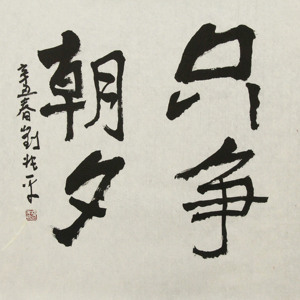 只争
朝夕
辛丑春刘